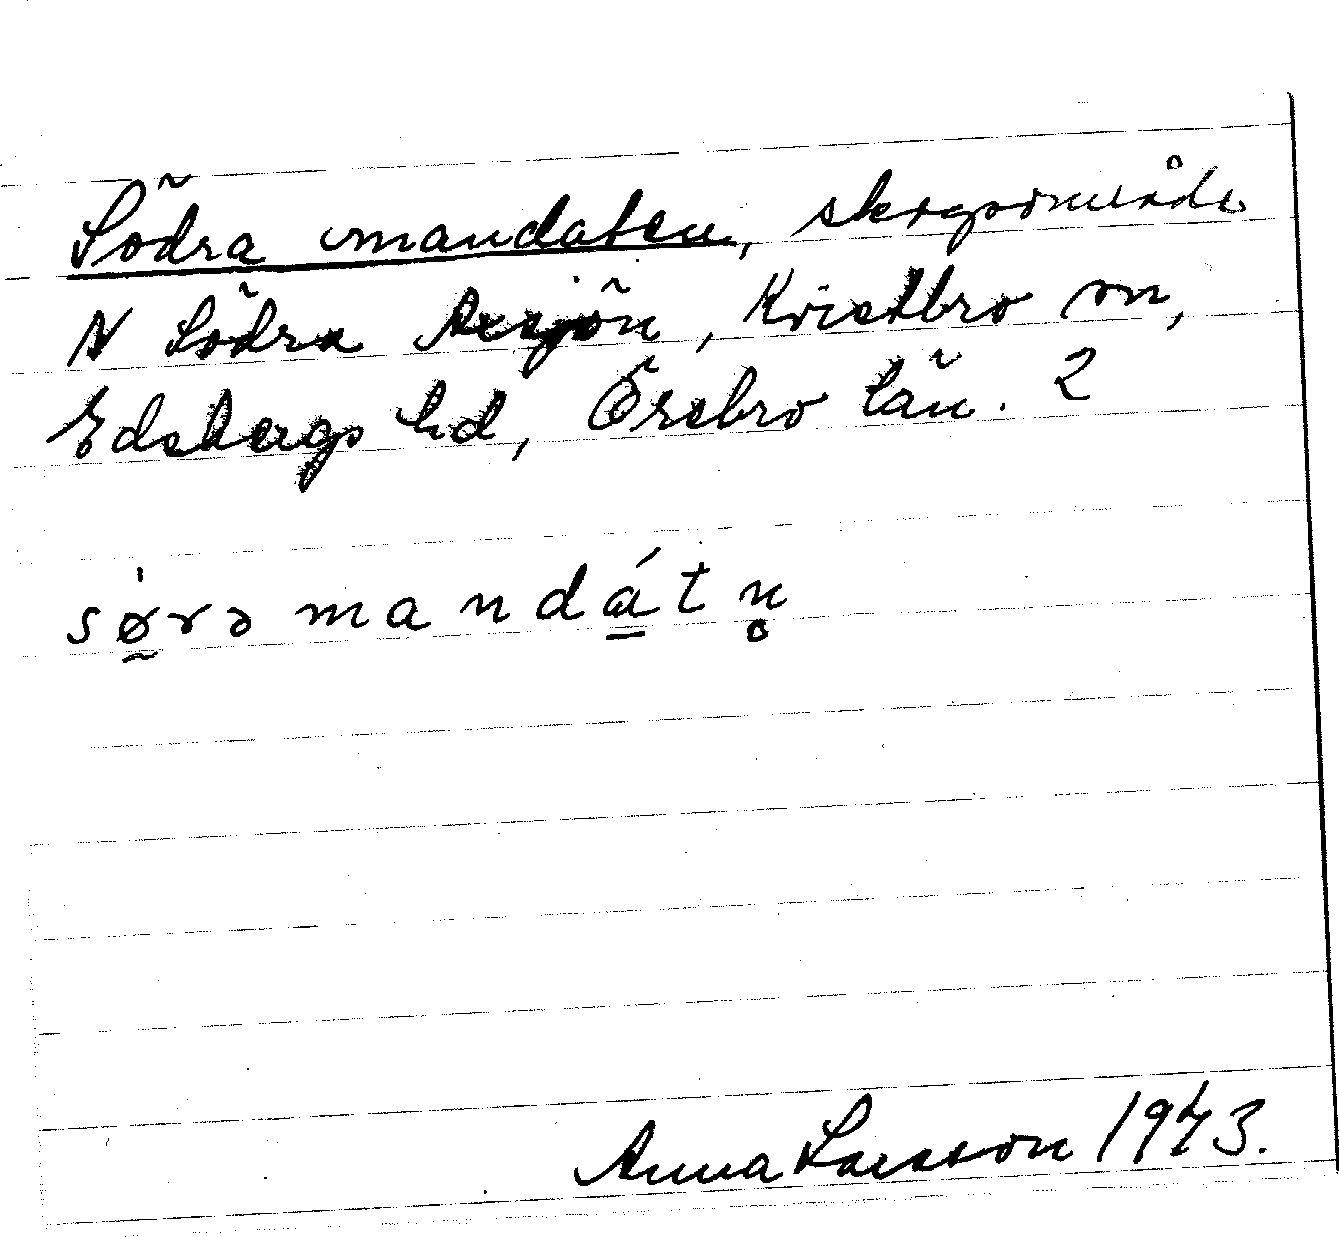 Södra mandaten, skogsområde
N Södra Axsjön, Kvistbro sn,
Edsbergs hd, Örebro län. 2
sø̰̍rə mandá̲tn̥
Anna Larsson 1943.